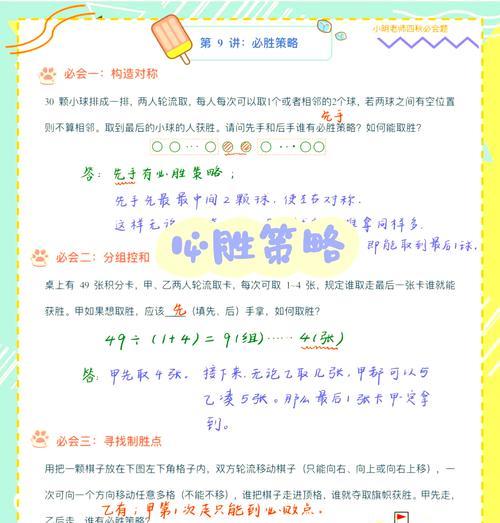 小明老师四秋必会题
第 9 讲：必胜策略
必会一：构造对称
30 颗小球排成一排，两人轮流取，每人每次可以取1个或者相邻的2个球，若两球之间有空位置
则不算相邻。取到最后的小球的人获胜。请问先手和后手谁有必胜策略？如何能取胜？
先手
答：先手有必胜策略；
先手先最最中间2颗球，使左右对称.
这样无论 拿同样多.
即能取到最后1球.
必胜策略
必会二：分组控和
桌上有 49 张积分卡，甲、乙两人轮流取卡，每次可取 1~4 张，规定谁取走最后一张卡谁就能
获胜。甲如果想取胜，应该 先 (填先、后) 手拿，如何取胜？
49÷(1+4)=9(组)……4(张)
答：甲先取4张. 接下来.无论乙取几张，甲都可以与
乙凑5张。那么最后1张卡甲一定拿
到.
必会三：寻找制胜点
用把一颗棋子放在下图左下角格子内，双方轮流移动棋子（只能向右、向上或向右上移），一
次可向一个方向移动任意多格（不能不移），谁把棋子走进顶格，谁就夺取旗帜获胜。甲先走，
乙有；甲第1次走只能到必败点.
乙后走，谁有必胜策略？